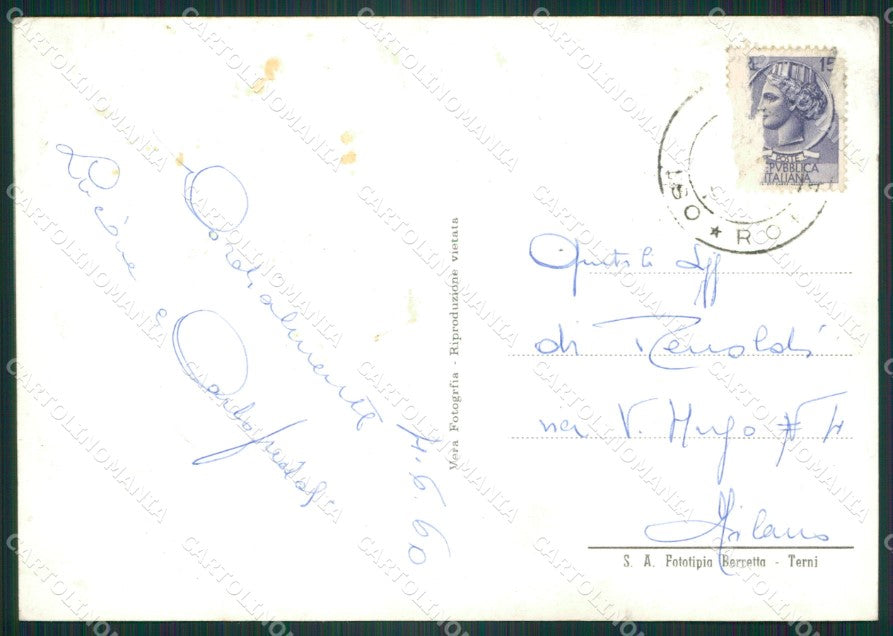 Cordialmente
4.6.60
Luciana e
Vera Fotogrfia - Riproduzione vietata
L. 15
POSTE
REPVBBLICA
ITALIANA
Gentili Sigg
di Renoldi
via V. Hugo # 4
Milano
S. A. Fototipia Berretta - Terni
CARTOLINOMANIA